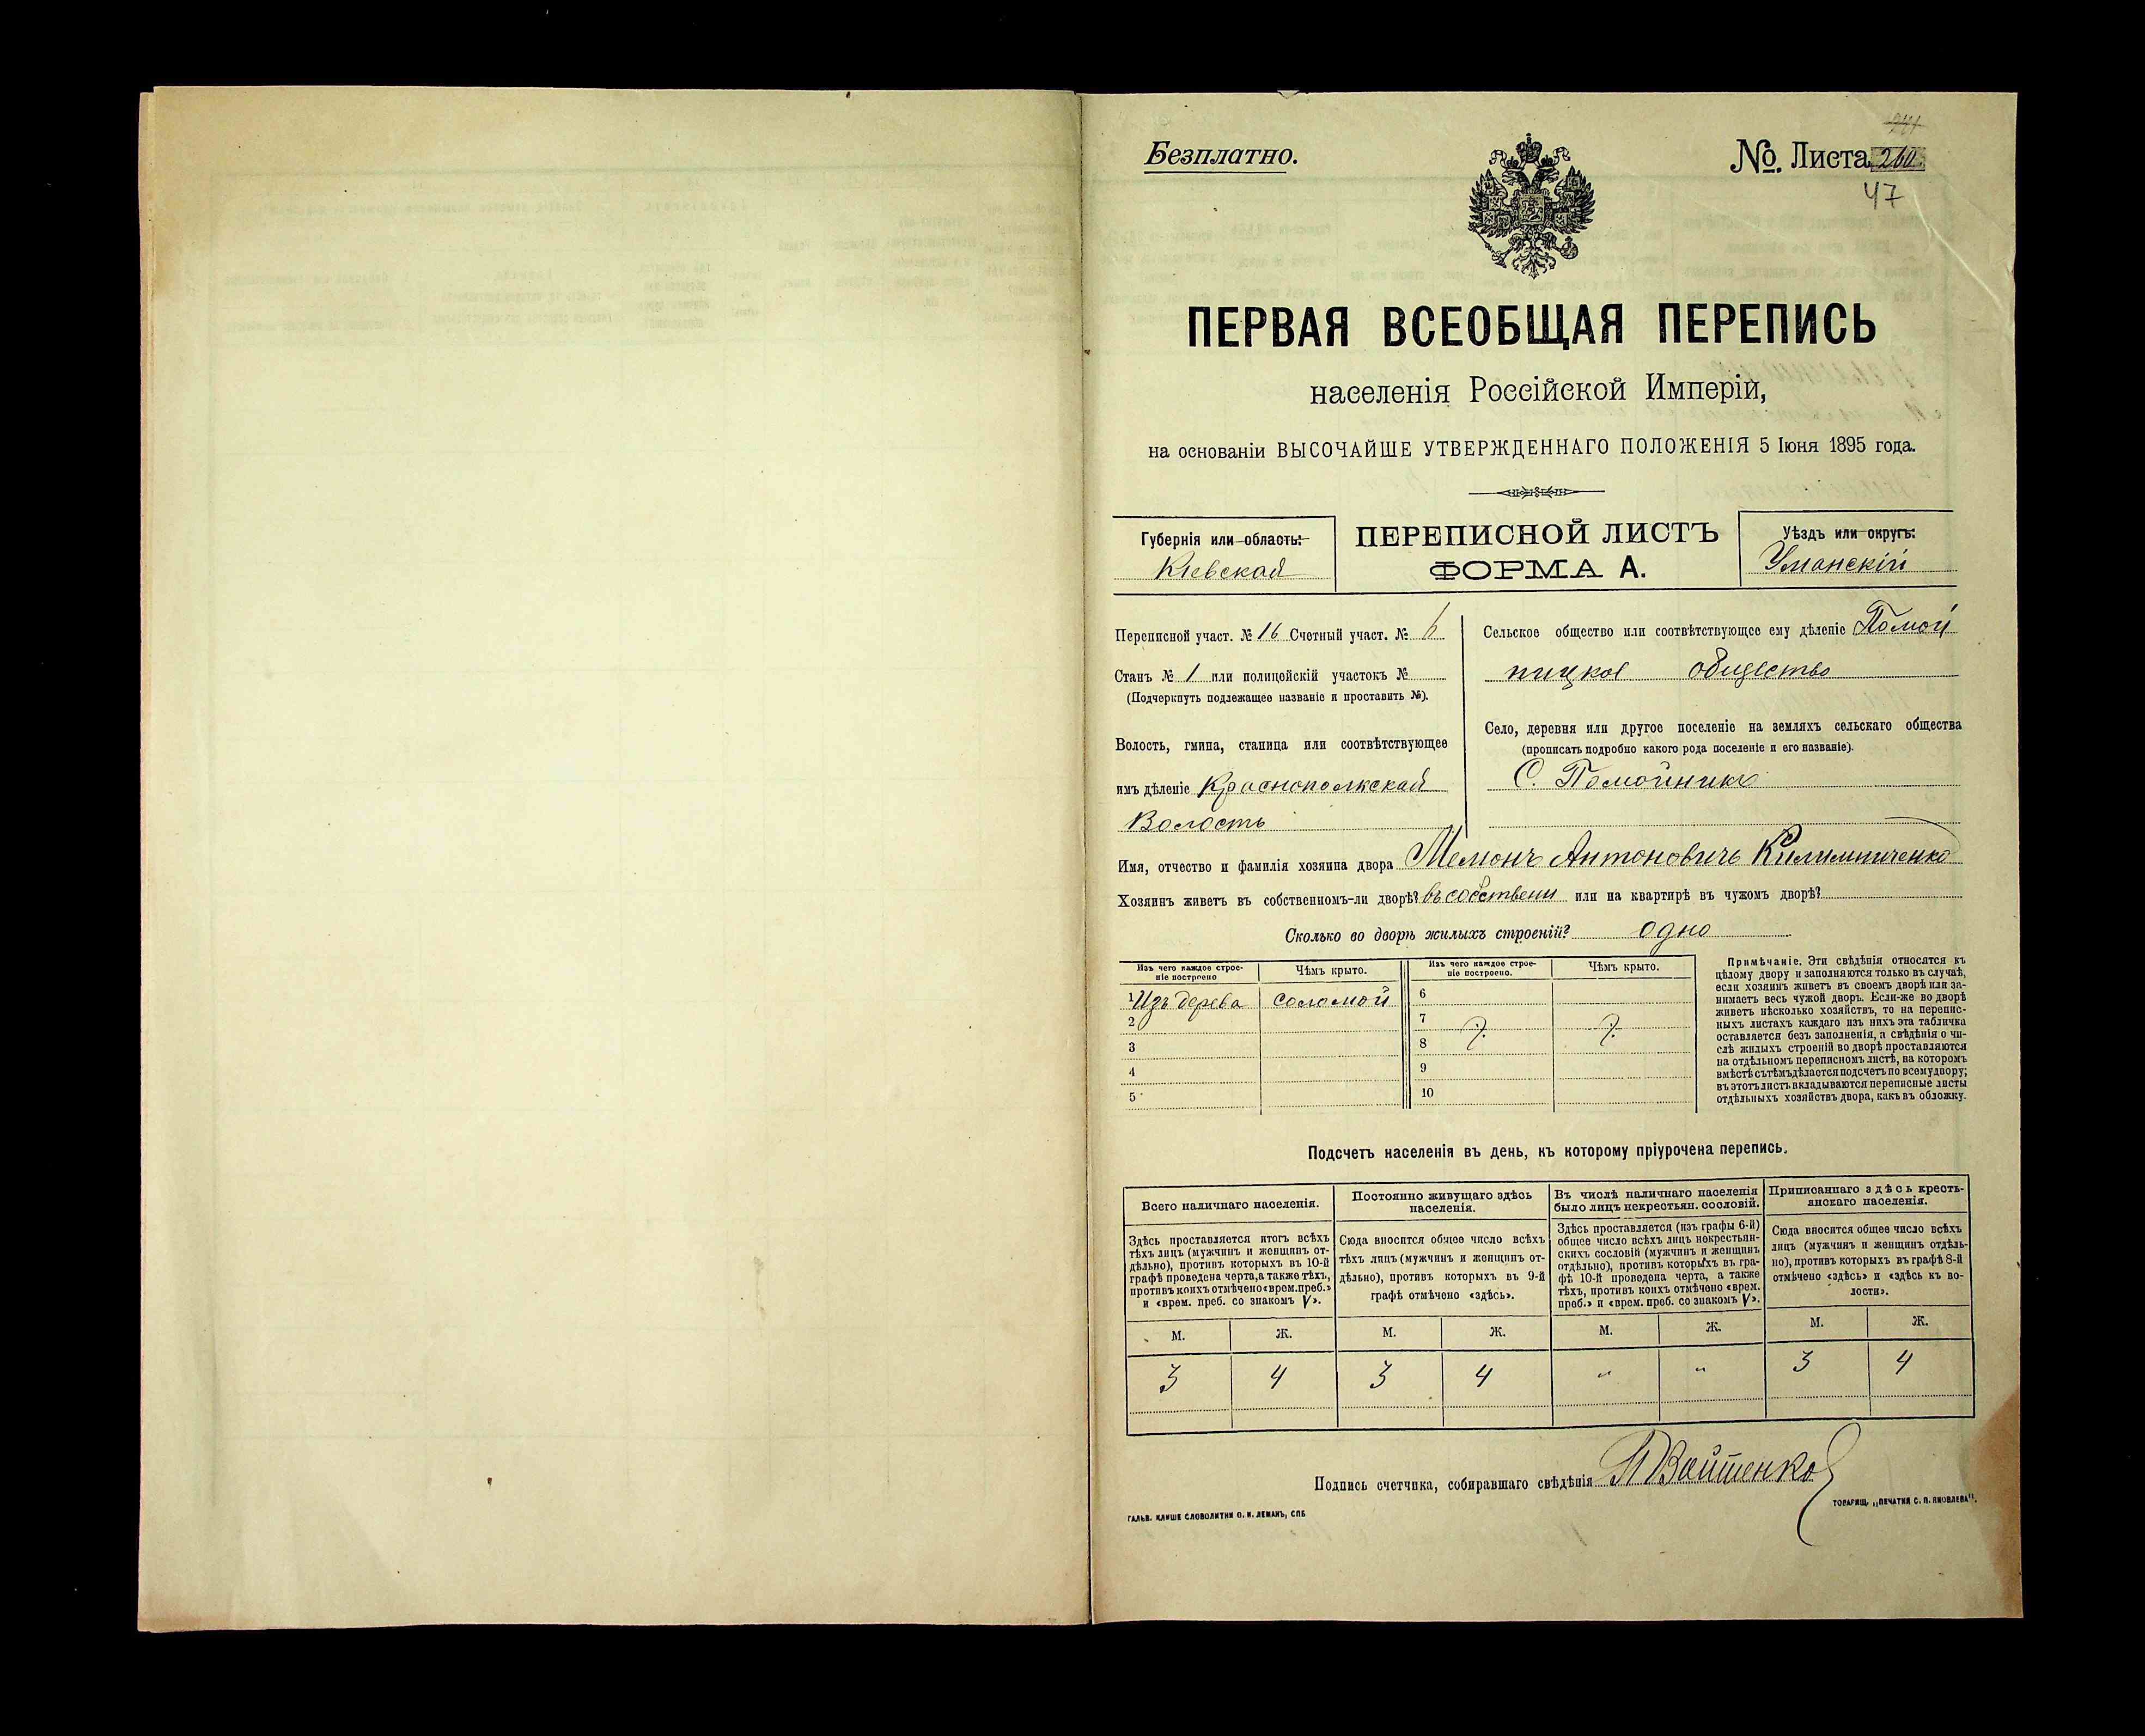 Безплатно.
№. Листа 260.
47
ПЕРВАЯ ВСЕОБЩАЯ ПЕРЕПИСЬ
населенія Россійской Имперіи,
на основаніи ВЫСОЧАЙШЕ УТВЕРЖДЕННАГО ПОЛОЖЕНІЯ 5 Іюня 1895 года.
Губернія или область:
Кіевская
ПЕРЕПИСНОЙ ЛИСТЪ
ФОРМА А.
Уѣздъ или округъ:
Уманскій
Переписной участ. № 16 Счетный участ. № 6
Станъ № 1 или полицейскій участокъ №
(Подчеркнуть подлежащее названіе и проставить №).
Волость, гмина, станица или соотвѣтствующее
имъ дѣленіе Краснополкская
Волость
Сельское общество или соотвѣтствующее ему дѣленіе Помой
ницкое общество
Село, деревня или другое поселеніе на земляхъ сельскаго общества
(прописать подробно какого рода поселеніе и его названіе).
С. Помойникъ
Имя, отчество и фамилія хозяина двора Мемонъ Антоновичъ Килимниченко
Хозяинъ живетъ въ собственномъ-ли дворѣ? въ собствени или на квартирѣ въ чужомъ дворѣ?
Сколько во дворѣ жилыхъ строеній? одно
Изъ чего каждое строе-
ніе построено
Чѣмъ крыто.
Изъ чего каждое строе-
ніе построено.
Чѣмъ крыто.
1 Изъ дерева соломой
2
3
4
5
6
7
8
9
10
Примѣчаніе. Эти свѣдѣнія относятся къ
цѣлому двору и заполняются только въ случаѣ,
если хозяинъ живетъ въ своемъ дворѣ или за-
нимаетъ весь чужой дворъ. Если-же во дворѣ
живетъ нѣсколько хозяйствъ, то на перепис-
ныхъ листахъ каждаго изъ нихъ эта табличка
оставляется безъ заполненія, а свѣдѣнія о чи-
слѣ жилыхъ строеній во дворѣ проставляются
на отдѣльномъ переписномъ листѣ, на которомъ
вмѣстѣ съ тѣмъ дѣлается подсчетъ по всему двору;
въ этотъ листъ вкладываются переписные листы
отдѣльныхъ хозяйствъ двора, какъ въ обложку.
Подсчетъ населенія въ день, къ которому пріурочена перепись.
Всего наличнаго населенія.
Здѣсь проставляется итогъ всѣхъ
тѣхъ лицъ (мужчинъ и женщинъ от-
дѣльно), противъ которыхъ въ 10-й
графѣ проведена черта, а также тѣхъ,
противъ коихъ отмѣчено «врем. преб.»
и «врем. преб. со знакомъ V».
М. Ж.
3 4
Постоянно живущаго здѣсь
населенія.
Сюда вносится общее число всѣхъ
тѣхъ лицъ (мужчинъ и женщинъ от-
дѣльно), противъ которыхъ въ 9-й
графѣ отмѣчено «здѣсь».
М. Ж.
3 4
Въ числѣ наличнаго населенія
было лицъ некрестьян. сословій.
Здѣсь проставляется (изъ графы 6-й)
общее число всѣхъ лицъ некрестьян-
скихъ сословій (мужчинъ и женщинъ
отдѣльно), противъ которыхъ въ гра-
фѣ 10-й проведена черта, а также
тѣхъ, противъ коихъ отмѣчено «врем.
преб.» и «врем. преб. со знакомъ V».
М. Ж.
" "
Приписаннаго здѣсь кресть-
янскаго населенія.
Сюда вносится общее число всѣхъ
лицъ (мужчинъ и женщинъ отдѣль-
но), противъ которыхъ въ графѣ 8-й
отмѣчено «здѣсь» и «здѣсь къ во-
лости».
М. Ж.
3 4
Подпись счетчика, собиравшаго свѣдѣнія П Войтенко
ГАЛЬВ. КЛИШЕ СЛОВОЛИТНИ О. И. ЛЕМАНЪ, СПБ
ТОВАРИЩ. „ПЕЧАТНЯ С. П. ЯКОВЛЕВА".